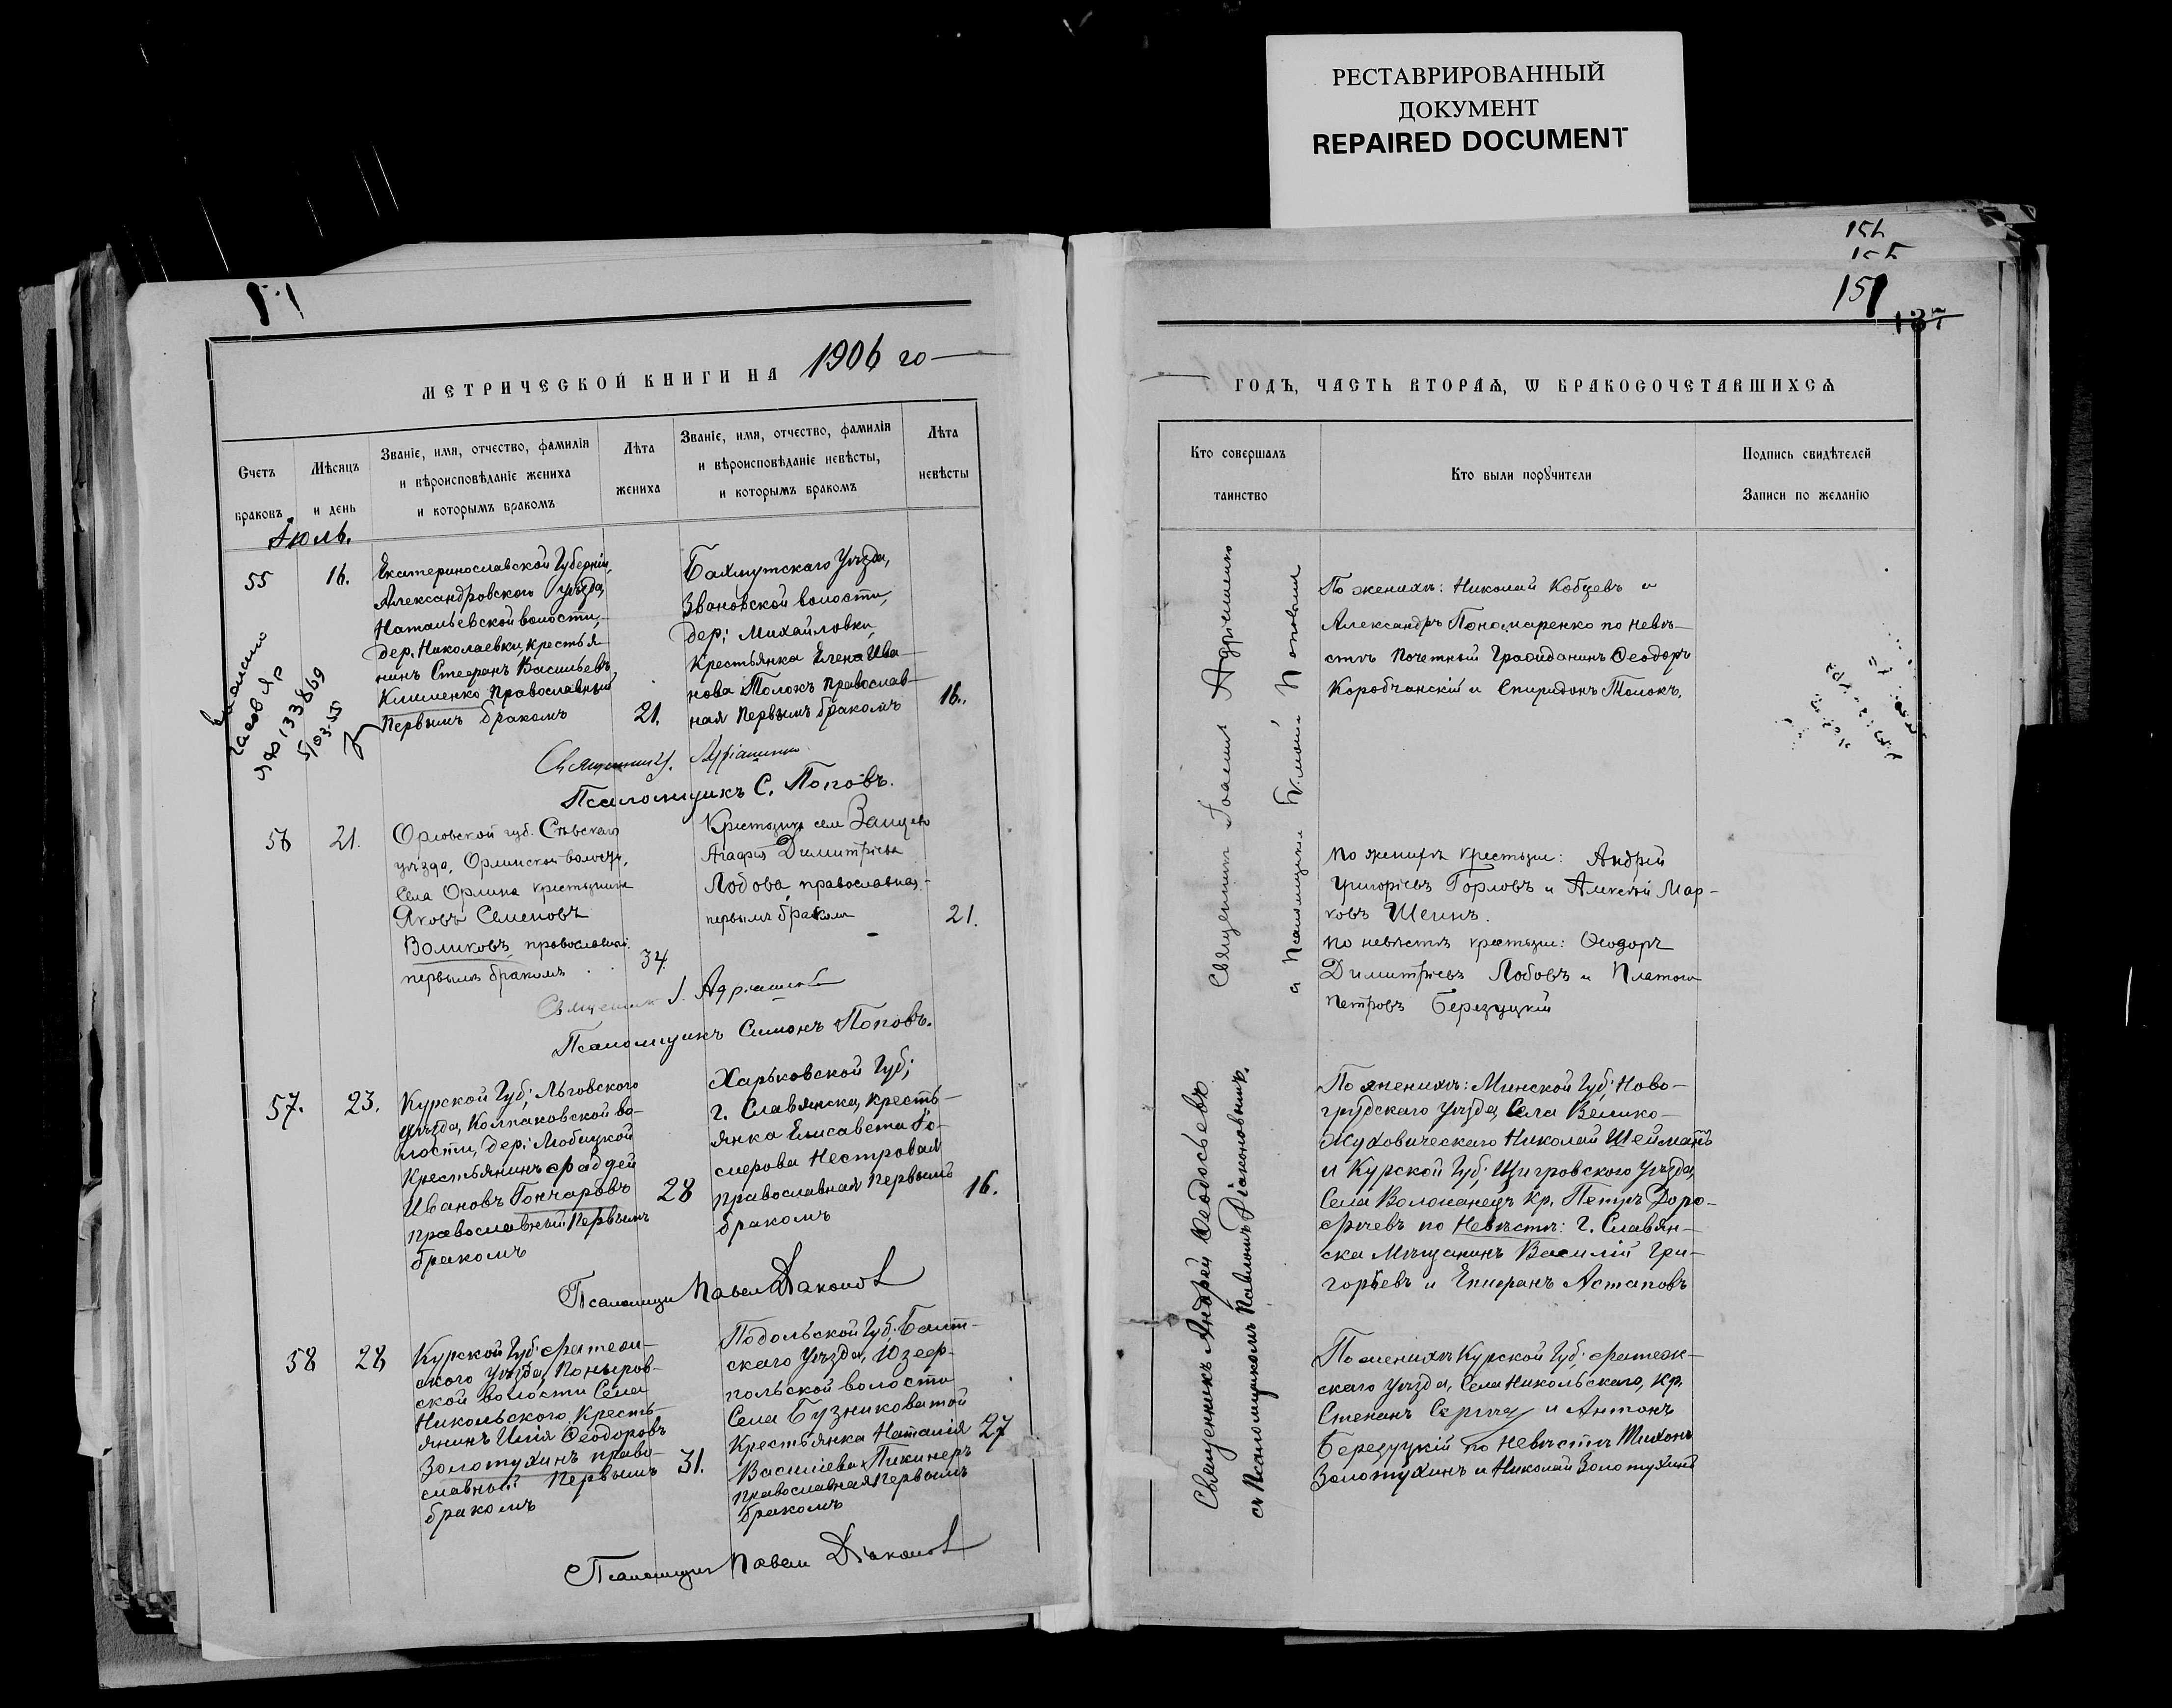 РЕСТАВРИРОВАННЫЙ
ДОКУМЕНТ
REPAIRED DOCUMENT
151
МЕТРИЧЕСКОЙ КНИГИ НА 1906 го
Счетъ
браковъ
Мѣсяцъ
и день
Званіе, имя, отчество, фамилія
и вѣроисповѣданіе жениха
и которымъ бракомъ
Лѣта
жениха
Званіе, имя, отчество, фамилія
и вѣроисповѣданіе невѣсты,
и которымъ бракомъ
Лѣта
невѣсты
Іюль.
55
16.
Екатеринославской Губерніи,
Александровского уѣзда,
Натальевской волости,
дер. Николаевки, крестья-
нинъ Стефанъ Васильевъ
Клименко православный
первымъ бракомъ
21.
Бахмутскаго Уѣзда,
Звановской волости,
дер: Михайловки,
Крестьянка Елена Ива-
нова Толокъ православ-
ная первымъ бракомъ
16.
Псаломщикъ С. Поповъ.
56
21.
Орловской губ. Сѣвскаго
уѣзда, Орлинской волости,
села Орлина крестьянинъ
Яковъ Семеновъ
Воликовъ, православный
первымъ бракомъ
34.
Агафія Димитріева
Лобова, православная
первымъ бракомъ
21.
Священникъ І. Адріаненко
Псаломщикъ Симонъ Поповъ.
57.
23.
Курской Губ; Льговского
уѣзда, Колпаковской во-
лости, дер: Любицкой
Крестьянинъ Фаддей
Ивановъ Гончаровъ
православный первымъ
бракомъ
28
Харьковской Губ;
г. Славянска, кресть-
янка Елисавета Го-
мерова Нестровая
православная первымъ
бракомъ
16.
Псаломщикъ Павелъ Діаконовъ
58
28
Курской Губ: Фатеж-
ского Уѣзда, Поныров-
ской волости Села
Никольского Кресть-
янинъ Илія Ѳеодоровъ
Золотухинъ право-
славный первымъ
бракомъ
31.
Подольской Губ: Балт-
скаго Уѣзда, Юзеф-
польской волости
Села Бузниковатой
Крестьянка Наталія
Василіева Пикинеръ
православная первымъ
бракомъ
27
Псаломщикъ Павелъ Діаконовъ
151
ГОДЪ, ЧАСТЬ ВТОРАЯ, Ѡ БРАКОСОЧЕТАВШИХСЯ
Кто совершалъ
таинство
Кто были поручители
Подпись свидѣтелей
Записи по желанію
Священникъ Іоаннъ Адріаненко
Священникъ Андрей Ѳеодосьевъ
съ Псаломщикомъ Павломъ Діаконовымъ.
По женихѣ: Николай Кобцевъ и
Александръ Пономаренко по невѣ-
стѣ Почетный Гражданинъ Ѳеодоръ
Коробчанскій и Спиридонъ Толокъ.
по женихѣ крестьяне: Андрей
Григорьевъ Горловъ и Алексѣй Мар-
ковъ Шеинъ.
по невѣстѣ крестьяне: Ѳеодоръ
Димитріевъ Лобовъ и Платонъ
Петровъ Березуцкій
По женихѣ: Минской Губ; Ново-
грудскаго Уѣзда, Села Велико-
Жуховического Николай Шейманъ
и Курской Губ; Щигровского Уѣзда,
Села Волоканецъ Кр. Петръ Доро-
фѣевъ по Невѣстѣ: г. Славян-
ска Мѣщанинъ Василій Гри-
горьевъ и Епифанъ Астаповъ
По женихѣ Курской Губ; Фатеж-
скаго Уѣзда, Села Никольскаго, Кр.
Степанъ и Антонъ
Березуцкій по Невѣстѣ Тихонъ
Золотухинъ и Николай Золотухинъ